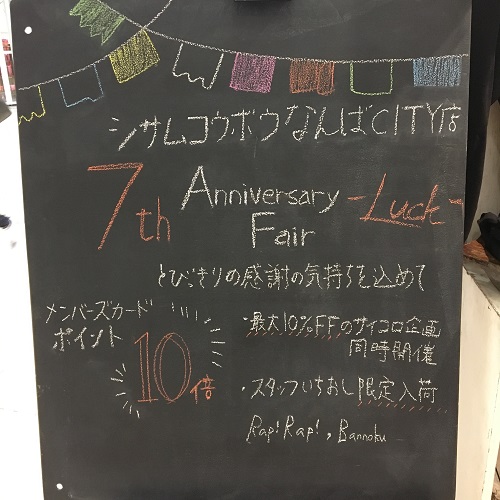 シサムコウボウなんばCITY店
7th Anniversary Fair -Luck-
とびきりの感謝の気持ちを込めて
メンバーズカード
ポイント
10倍
・最大10%FFのサイコロ企画
同時開催
・スタッフいちおし限定入荷
Rap! Rap!, Bannoku